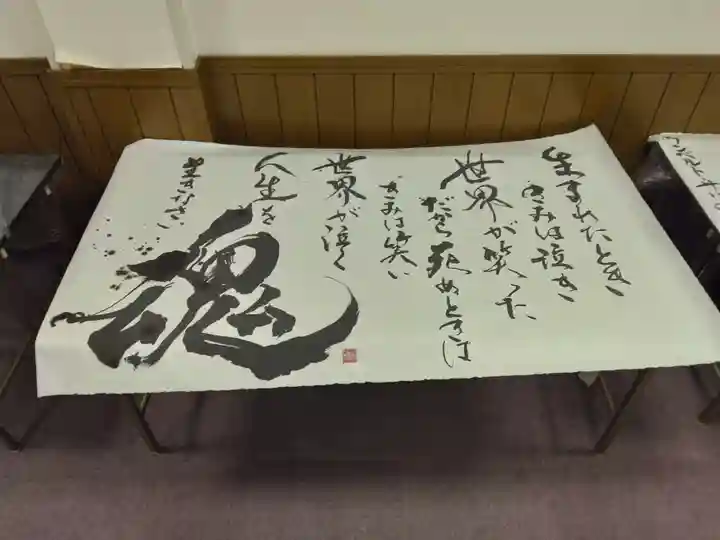 生まれたとき
きみは泣き
世界が笑った
だから死ぬときは
きみは笑い
世界が泣く
人生を
生きなさい
魂